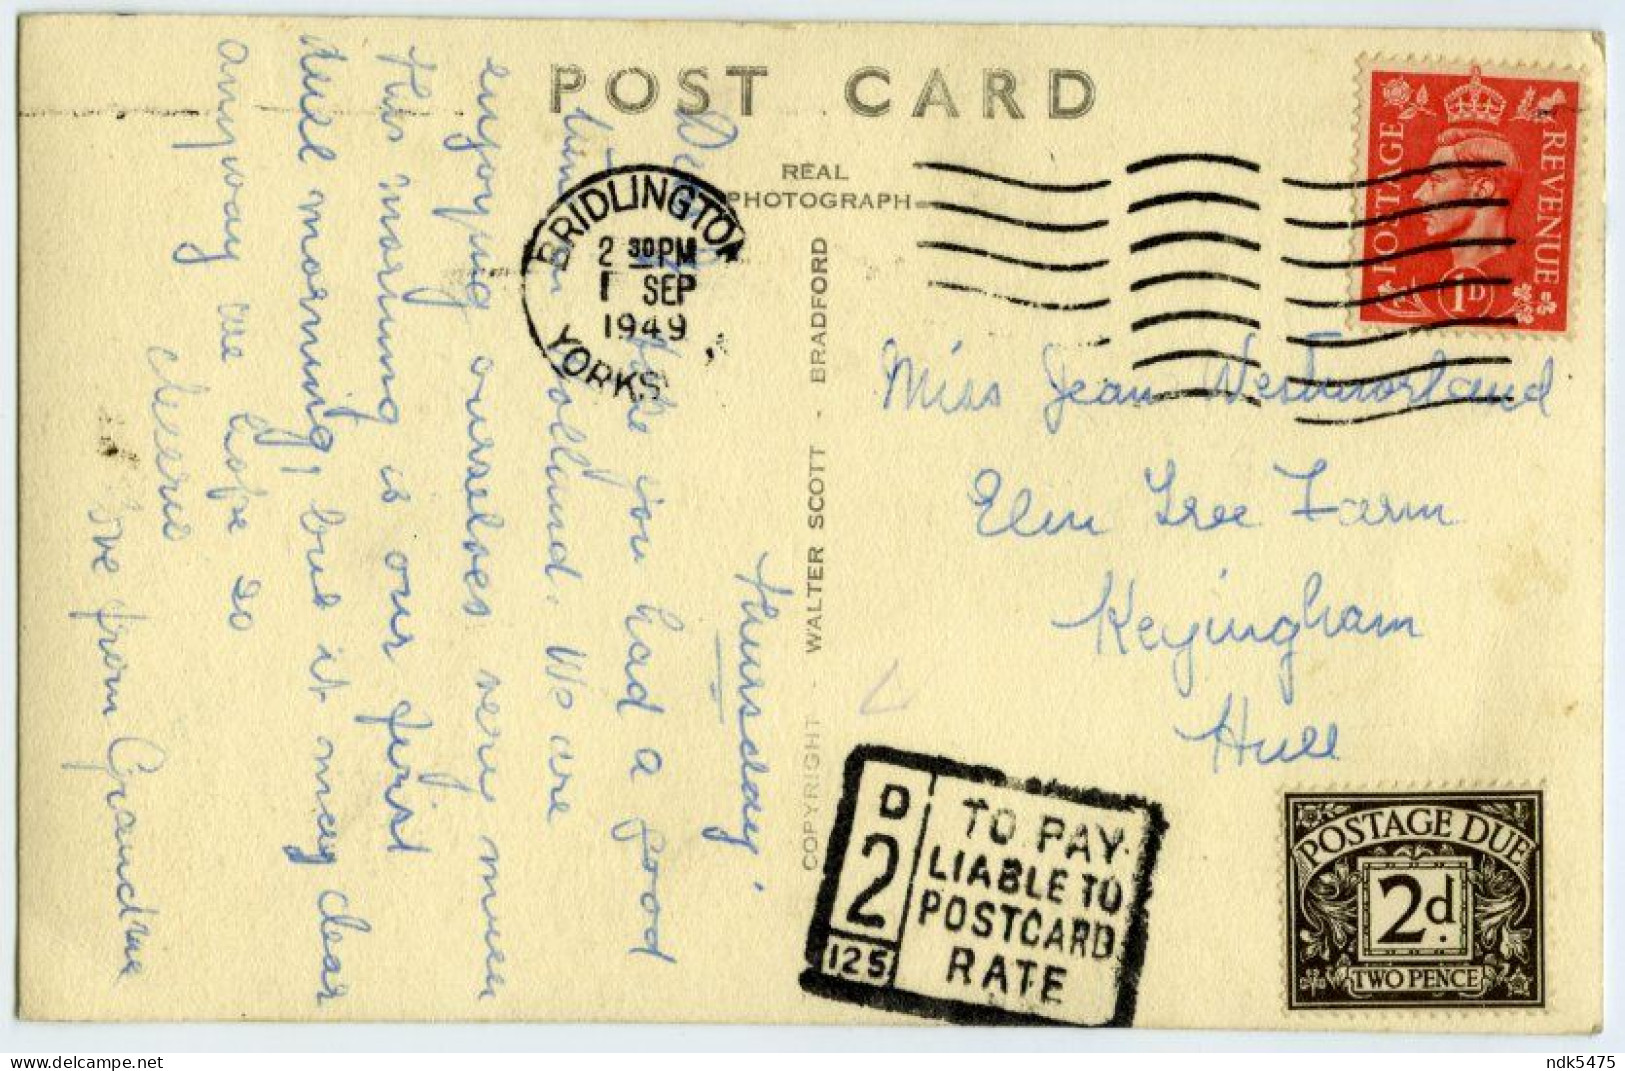 POST CARD
REAL
PHOTOGRAPH
COPYRIGHT - WALTER SCOTT - BRADFORD
BRIDLINGTON
2 30 PM
1 SEP
1949
YORKS
POSTAGE REVENUE
1D
Thursday.
Dear
Hope you had a good
time in Holland. We are
enjoying ourselves very much
this morning is our first
dull morning, but it may clear
anyway we hope so
cheerio
love from Grandma
Miss Jean Westmorland
Elm Tree Farm
Keyingham
Hull
D
2
125
TO PAY
LIABLE TO
POSTCARD
RATE
POSTAGE DUE
2d.
TWO PENCE
delcampe.net
ndk5475